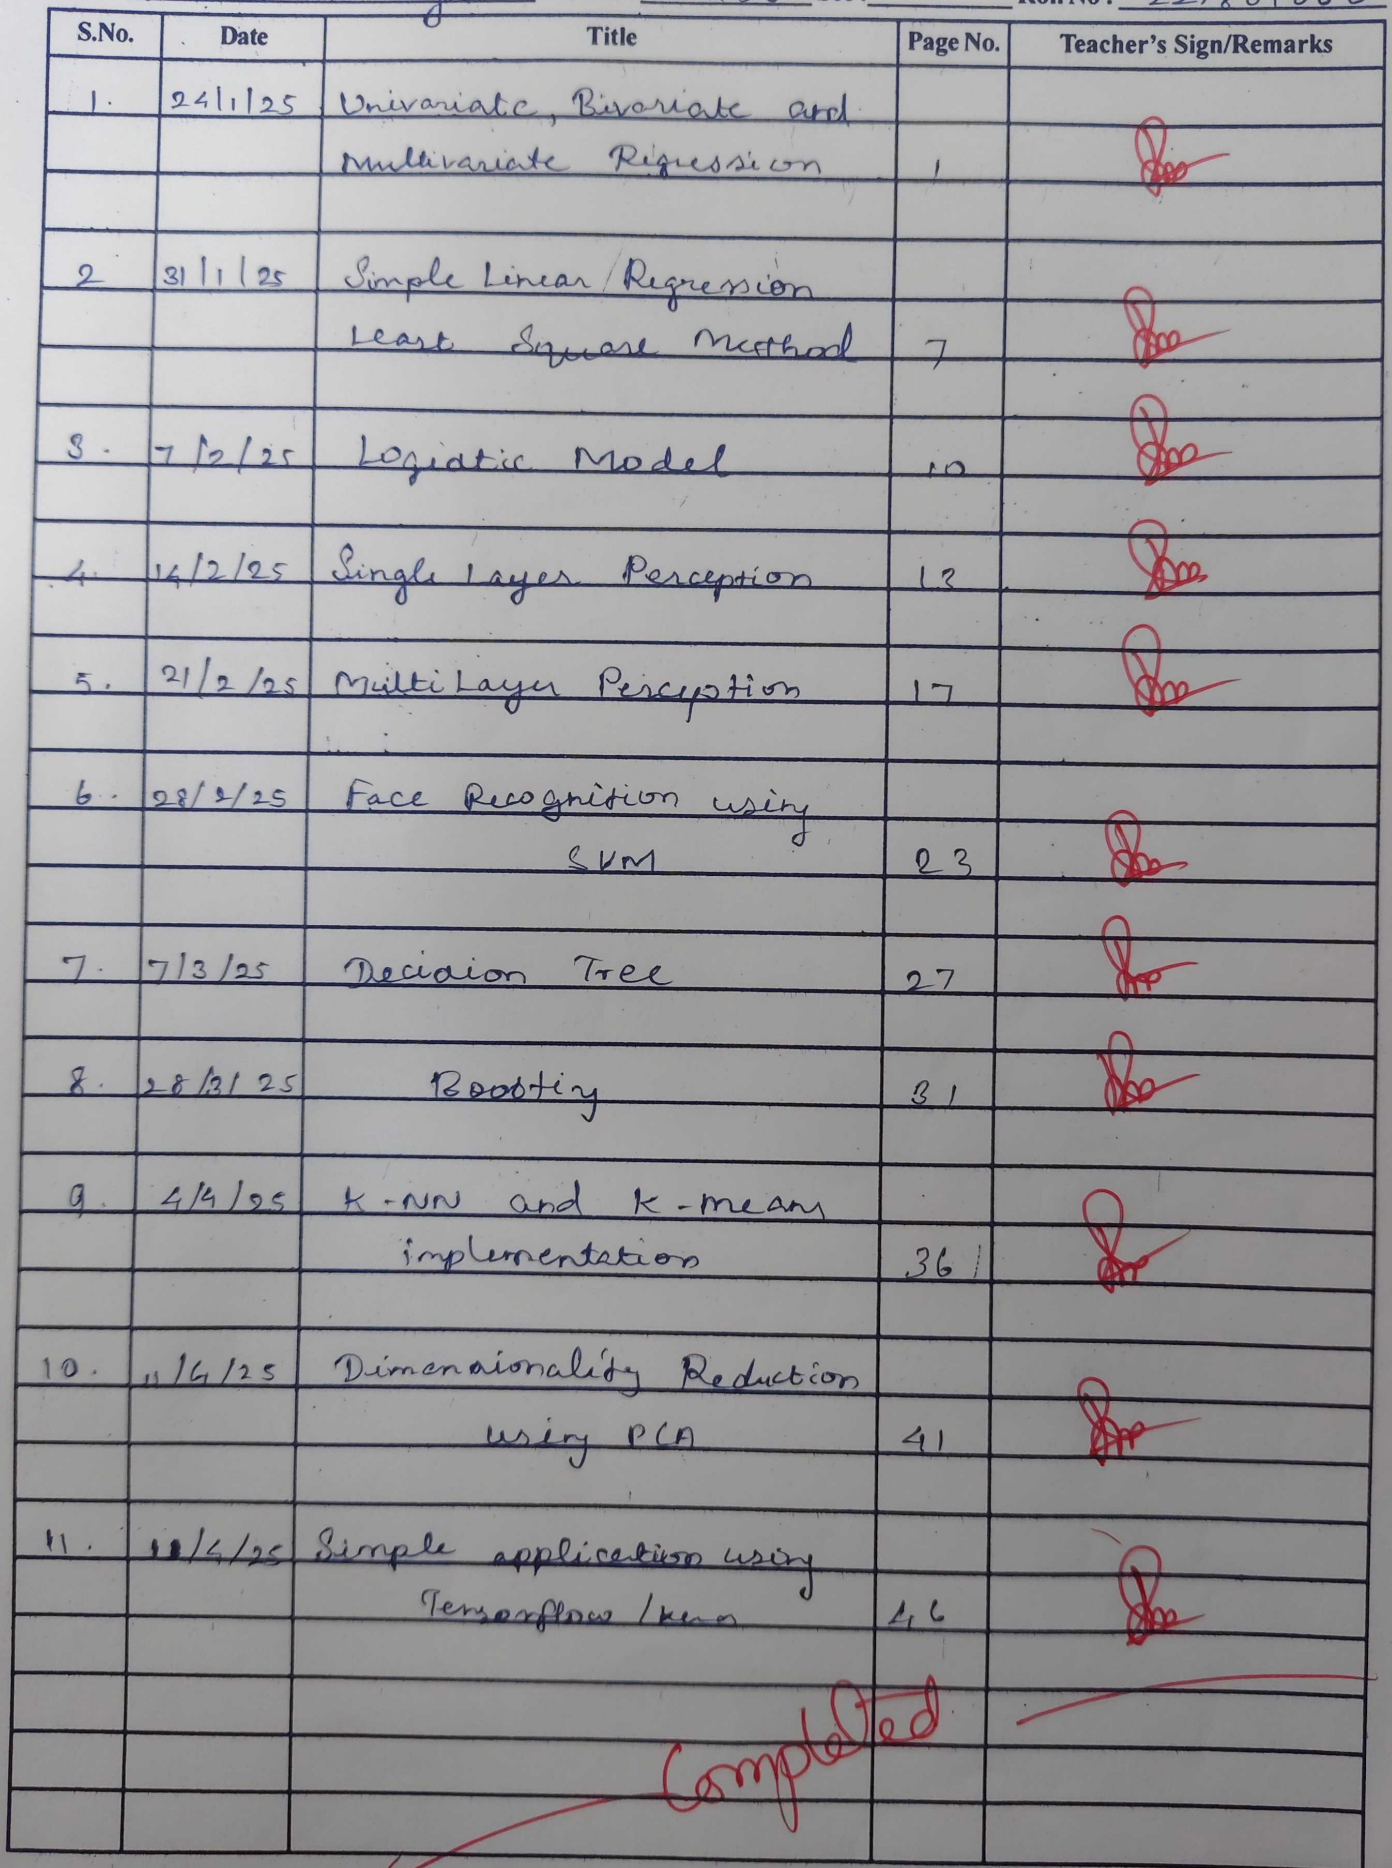 Roll No :
S.No. Date Title Page No. Teacher's Sign/Remarks
1. 24/1/25 Univariate, Bivariate and
Multivariate Rigression 1
2 31/1/25 Simple Linear Regression
Least Square Method 7
3. 7/2/25 Logistic Model 10
4. 14/2/25 Single Layer Perception 13
5. 21/2/25 Multi Layer Perception 17
6. 28/2/25 Face Recognition using
SVM 23
7. 7/3/25 Decision Tree 27
8. 28/3/25 Boosting 31
9. 4/4/25 K-NN and K-means
implementation 36
10. 11/4/25 Dimensionality Reduction
using PCA 41
11. 11/4/25 Simple application using
Tensorflow / keras 46
Completed